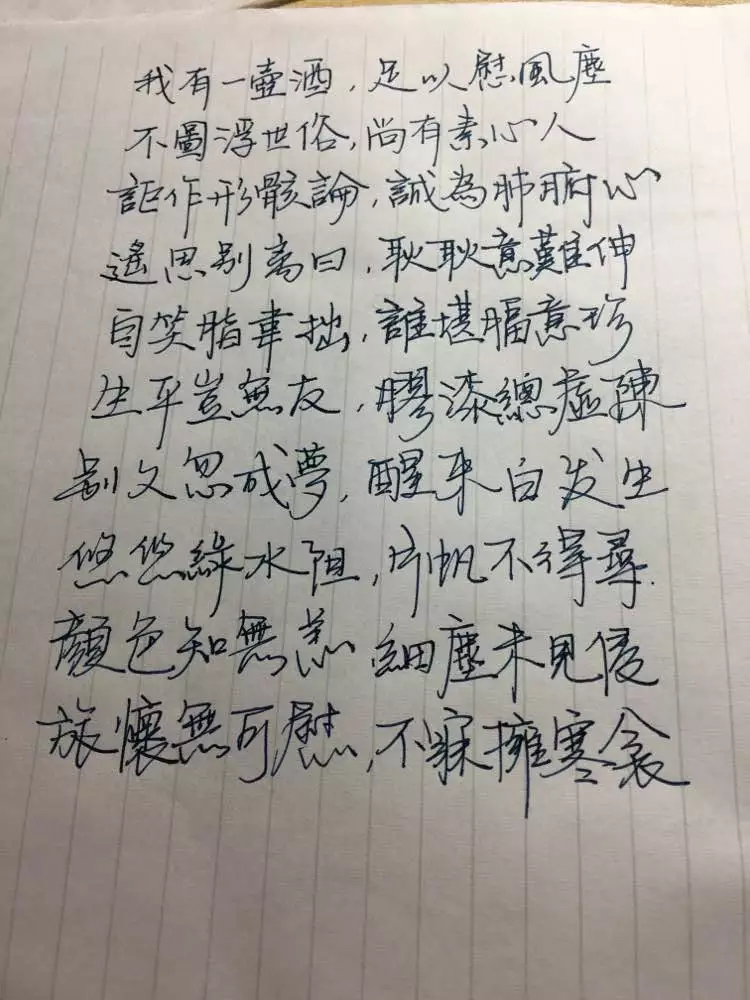 我有一壺酒，足以慰風塵
不圖浮世俗，尚有素心人
詎作形骸論，誠為肺腑心
遙思别离日，耿耿意難伸
自笑脂韋拙，誰堪腷意珍
生平豈無友，膠漆總虛陳
别久忽成夢，醒来白发生
悠悠綠水阻，片帆不得尋.
顏色知無恙 細塵未見侵
旅懷無可慰，不寐擁寒衾